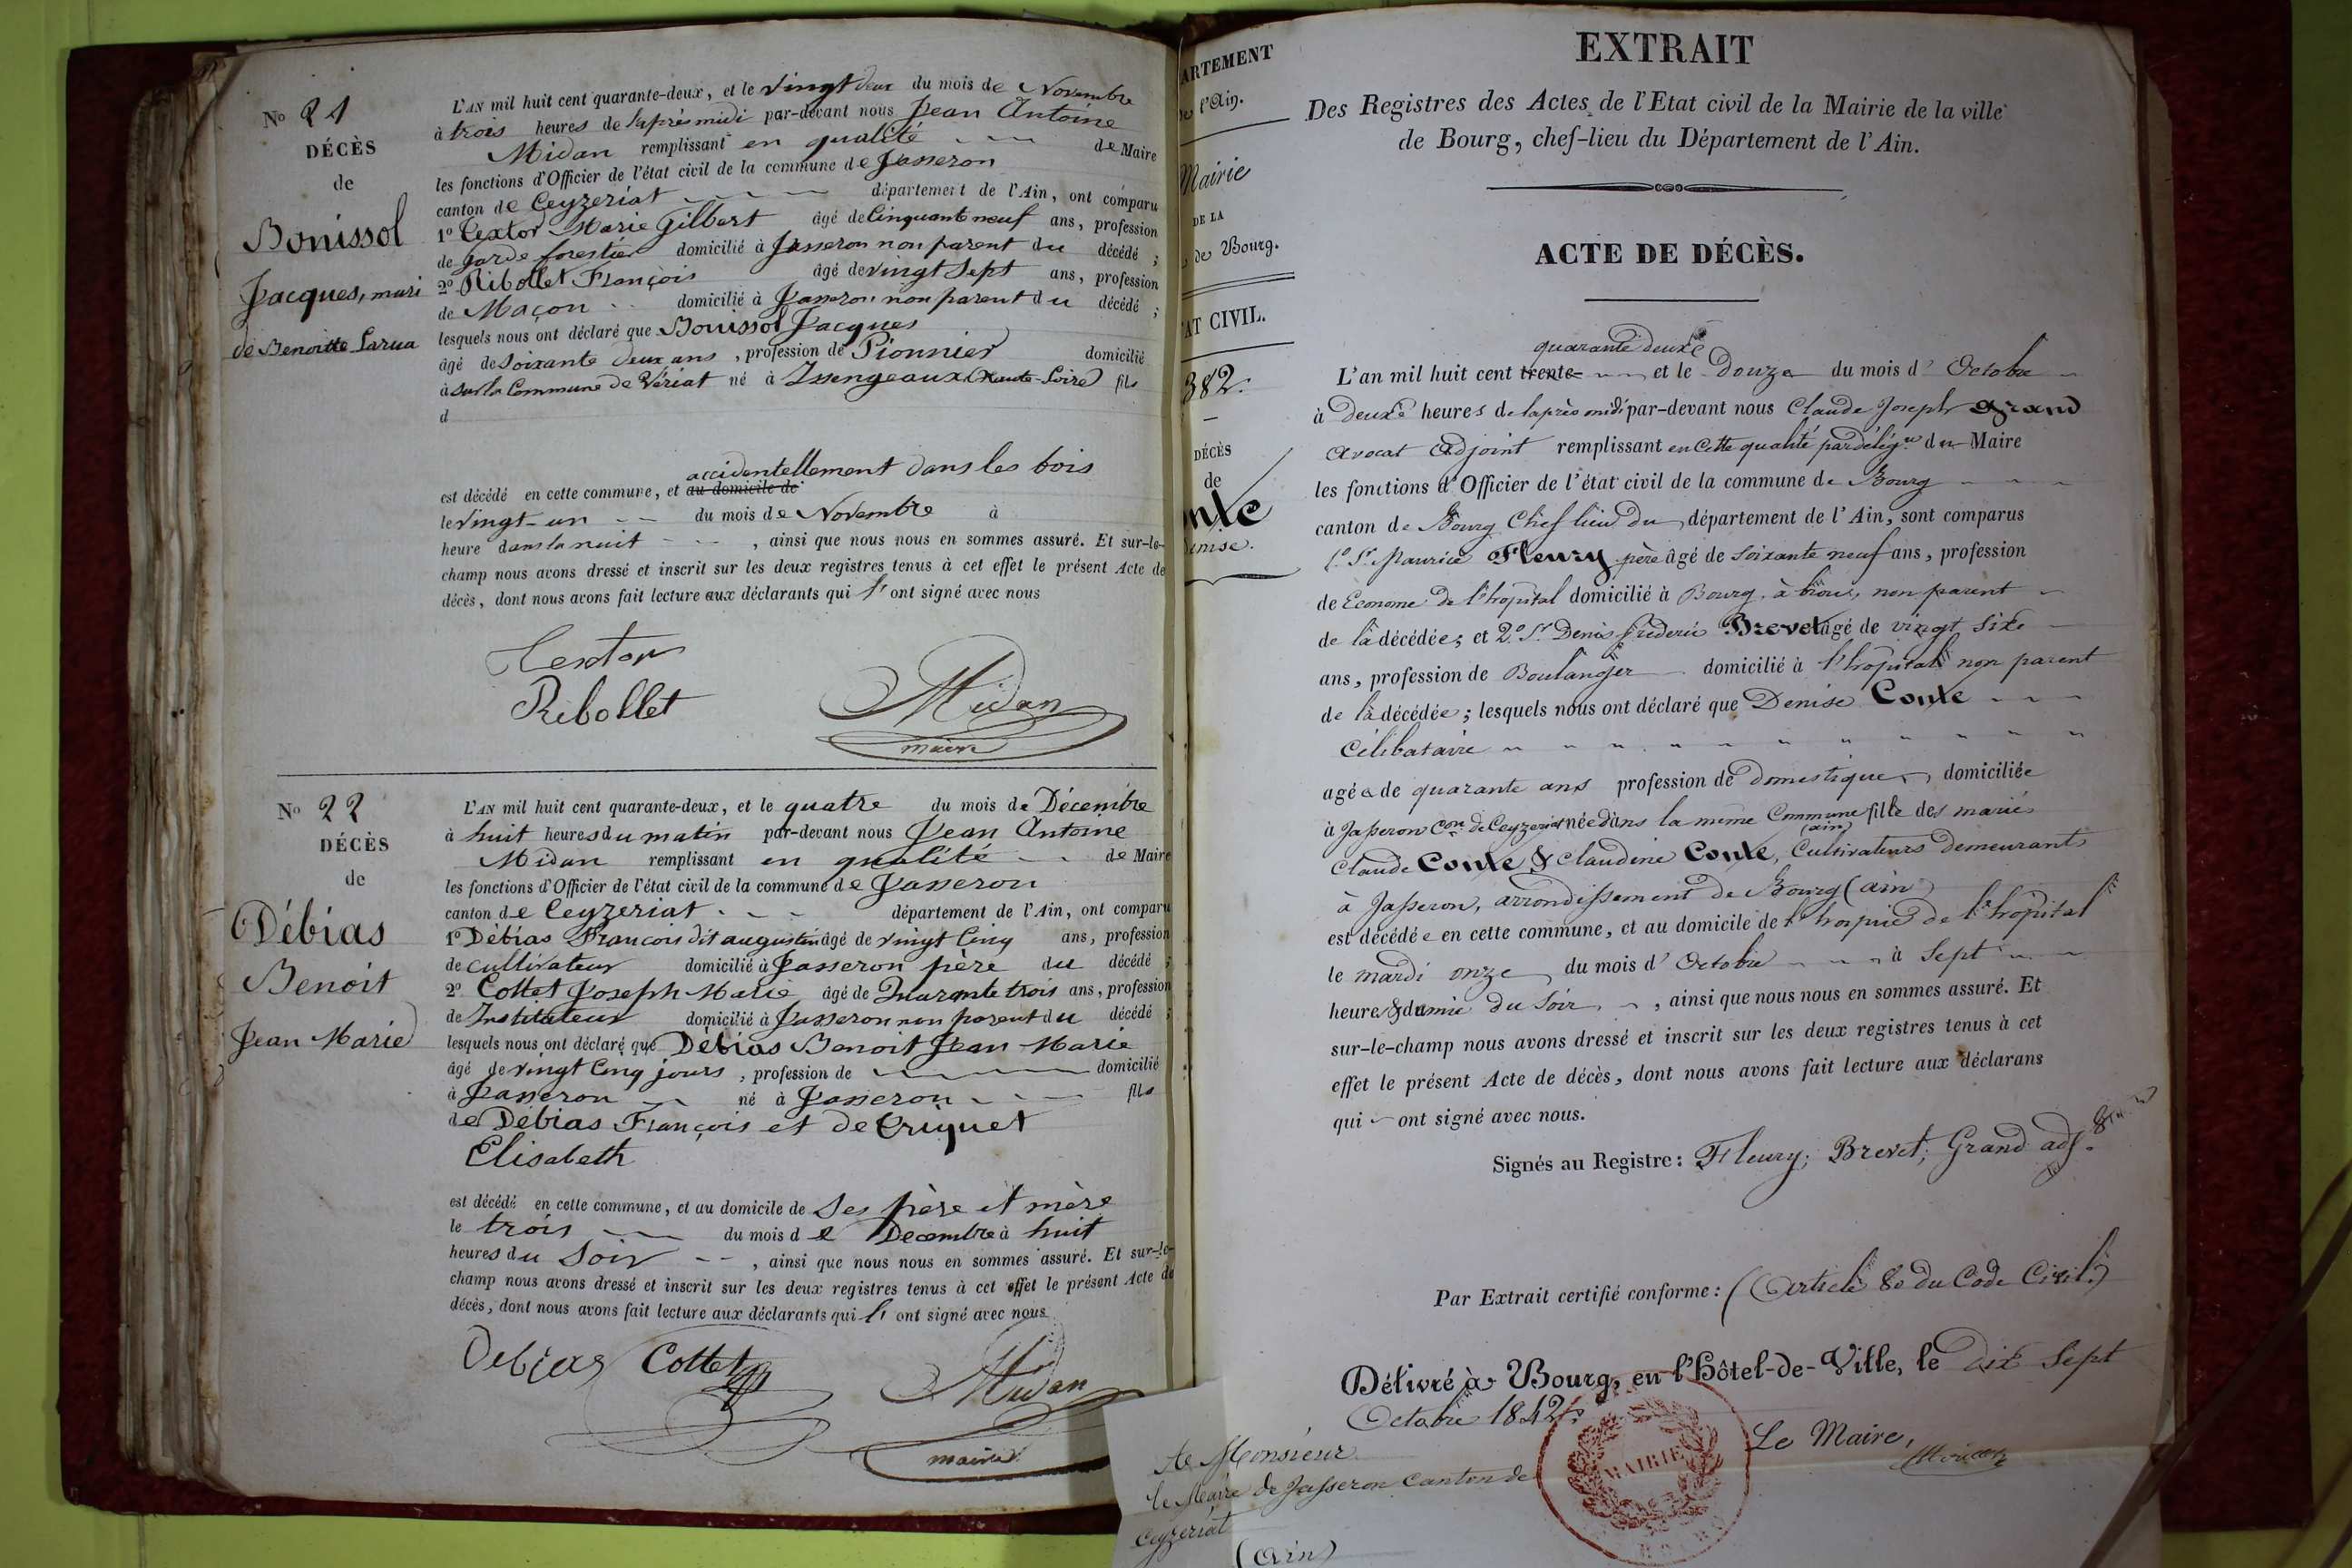 No 21
DÉCÈS
de
Bonissol
Jacques, mari
de Benoitte Larua
L'AN mil huit cent quarante-deux, et le vingt deux du mois de Novembre
à trois heures de l'après midi par-devant nous Jean Antoine
Midan remplissant en qualité de Maire
les fonctions d'Officier de l'état civil de la commune de Jasseron
canton de Ceyzeriat département de l'Ain, ont comparu
1o Textor Marie Gilbert âgé de Cinquante neuf ans, profession
de garde forestier domicilié à Jasseron non parent du décédé ;
2o Ribollet François âgé de vingt Sept ans, profession
de Maçon domicilié à Jasseron non parent du décédé ;
lesquels nous ont déclaré que Bonissol Jacques
âgé de Soixante deux ans , profession de Pionnier domicilié
à sur la Commune de Vériat né à Issengeaux (haute-Loire) fils
d
accidentellement dans les bois
est décédé en cette commune, et au domicile de
le vingt-un du mois de Novembre à
heure dans la nuit , ainsi que nous nous en sommes assuré. Et sur-le-
champ nous avons dressé et inscrit sur les deux registres tenus à cet effet le présent Acte de
décès, dont nous avons fait lecture aux déclarants qui l' ont signé avec nous
Textor
Ribollet
Midan
maire
No 22
DÉCÈS
de
Débias
Benoit
Jean Marie
L'AN mil huit cent quarante-deux, et le quatre du mois de Décembre
à huit heures du matin par-devant nous Jean Antoine
Midan remplissant en qualité de Maire
les fonctions d'Officier de l'état civil de la commune de Jasseron
canton de Ceyzeriat département de l'Ain, ont comparu
1o Débias François dit augustin âgé de vingt Cinq ans, profession
de cultivateur domicilié à Jasseron père du décédé ;
2o Cottet Joseph-Marie âgé de Quarante trois ans, profession
de Instituteur domicilié à Jasseron non parent du décédé ;
lesquels nous ont déclaré que Débias Benoit Jean-Marie
âgé de vingt Cinq jours , profession de domicilié
à Jasseron né à Jasseron fils
de Débias François et de Criquet
Elisabeth
est décédé en cette commune, et au domicile de Ses père et mère
le trois du mois de Decembre à huit
heures du Soir , ainsi que nous nous en sommes assuré. Et sur-le-
champ nous avons dressé et inscrit sur les deux registres tenus à cet effet le présent Acte de
décès, dont nous avons fait lecture aux déclarants qui l' ont signé avec nous
Debias Cottet
Midan
maire
ARTEMENT
de l'Ain.
Mairie
DE LA
de Bourg.
AT CIVIL.
382.
DÉCÈS
de
nte
enise.
EXTRAIT
Des Registres des Actes de l'Etat civil de la Mairie de la ville
de Bourg, chef-lieu du Département de l'Ain.
ACTE DE DÉCÈS.
quarante deux
L'an mil huit cent trente et le Douze du mois d' Octobre
à Deux heures de l'après midi par-devant nous Claude Joseph Grand
avocat adjoint remplissant en cette qualité par délégon du Maire
les fonctions d'Officier de l'état civil de la commune de Bourg
canton de Bourg Chef lieu du département de l'Ain, sont comparus
1o Sr Maurice Fleury père âgé de Soixante neuf ans, profession
de Econome de l'hopital domicilié à Bourg, à brou, non parent
de la décédée; et 2o Sr Denis frederic Brevet âgé de vingt Six
ans, profession de Boulanger domicilié à l'hopital non parent
de la décédée; lesquels nous ont déclaré que Denise Conte
Célibataire
agée de quarante ans profession de domestique, domiciliée
à Jasseron Con de Ceyzeriat née dans la même Commune (ain) fille des mariés
Claude Conte & Claudine Conte, Cultivateurs demeurants
à Jasseron, arrondissement de Bourg (ain)
est décédée en cette commune, et au domicile de l'hospice de l'hopital
le mardi onze du mois d' Octobre à Sept
heures & demie du Soir , ainsi que nous nous en sommes assuré. Et
sur-le-champ nous avons dressé et inscrit sur les deux registres tenus à cet
effet le présent Acte de décès, dont nous avons fait lecture aux déclarans
qui ont signé avec nous.
Signés au Registre: Fleury; Brevet; Grand adj.
Par Extrait certifié conforme: (Article 80 du Code Civil)
Délivré à Bourg, en l'Hôtel-de-Ville, le Dix Sept
Octobre 1842.
Le Maire,
MAIRIE
A Monsieur
le Maire de Jasseron Canton de
Ceyzeriat
(Ain)